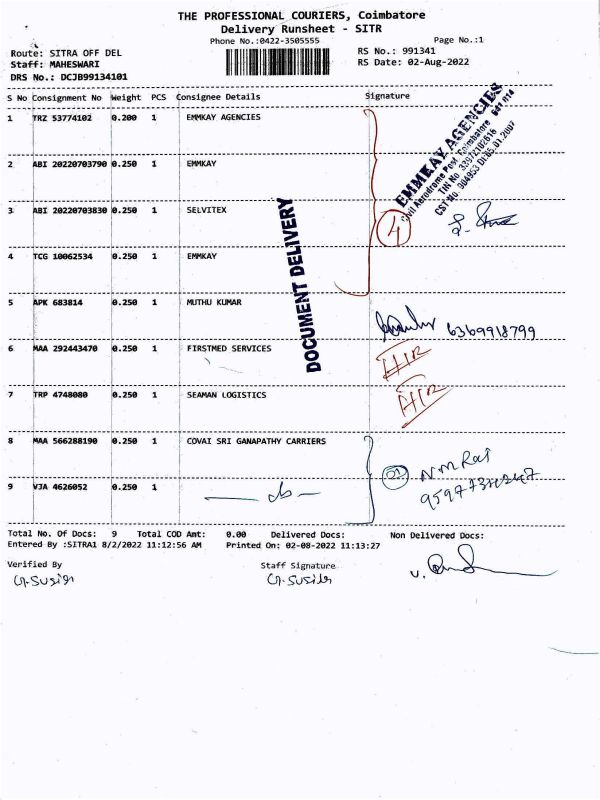 THE PROFESSIONAL COURIERS, Coimbatore
Delivery Runsheet - SITR
Phone No.:0422-3505555
Page No.:1
Route: SITRA OFF DEL
RS No.: 991341
Staff: MAHESWARI
RS Date: 02-Aug-2022
DRS No.: DCJB99134101
S No Consignment No Weight PCS Consignee Details Signature
1 TRZ 53774102 0.200 1 EMMKAY AGENCIES
2 ABI 20220703790 0.250 1 EMMKAY
3 ABI 20220703830 0.250 1 SELVITEX
4 TCG 10062534 0.250 1 EMMKAY
5 APK 683814 0.250 1 MUTHU KUMAR
6 MAA 292443470 0.250 1 FIRSTMED SERVICES
7 TRP 4748080 0.250 1 SEAMAN LOGISTICS
8 MAA 566288190 0.250 1 COVAI SRI GANAPATHY CARRIERS
9 VJA 4626052 0.250 1
EMMKAY AGENCIES
Civil Aerodrome Post, Coimbatore 641 014
DOCUMENT DELIVERY
4
6369918799
Total No. Of Docs: 9 Total COD Amt: 0.00 Delivered Docs: Non Delivered Docs:
Entered By :SITRA1 8/2/2022 11:12:56 AM Printed On: 02-08-2022 11:13:27
Verified By
Staff Signature